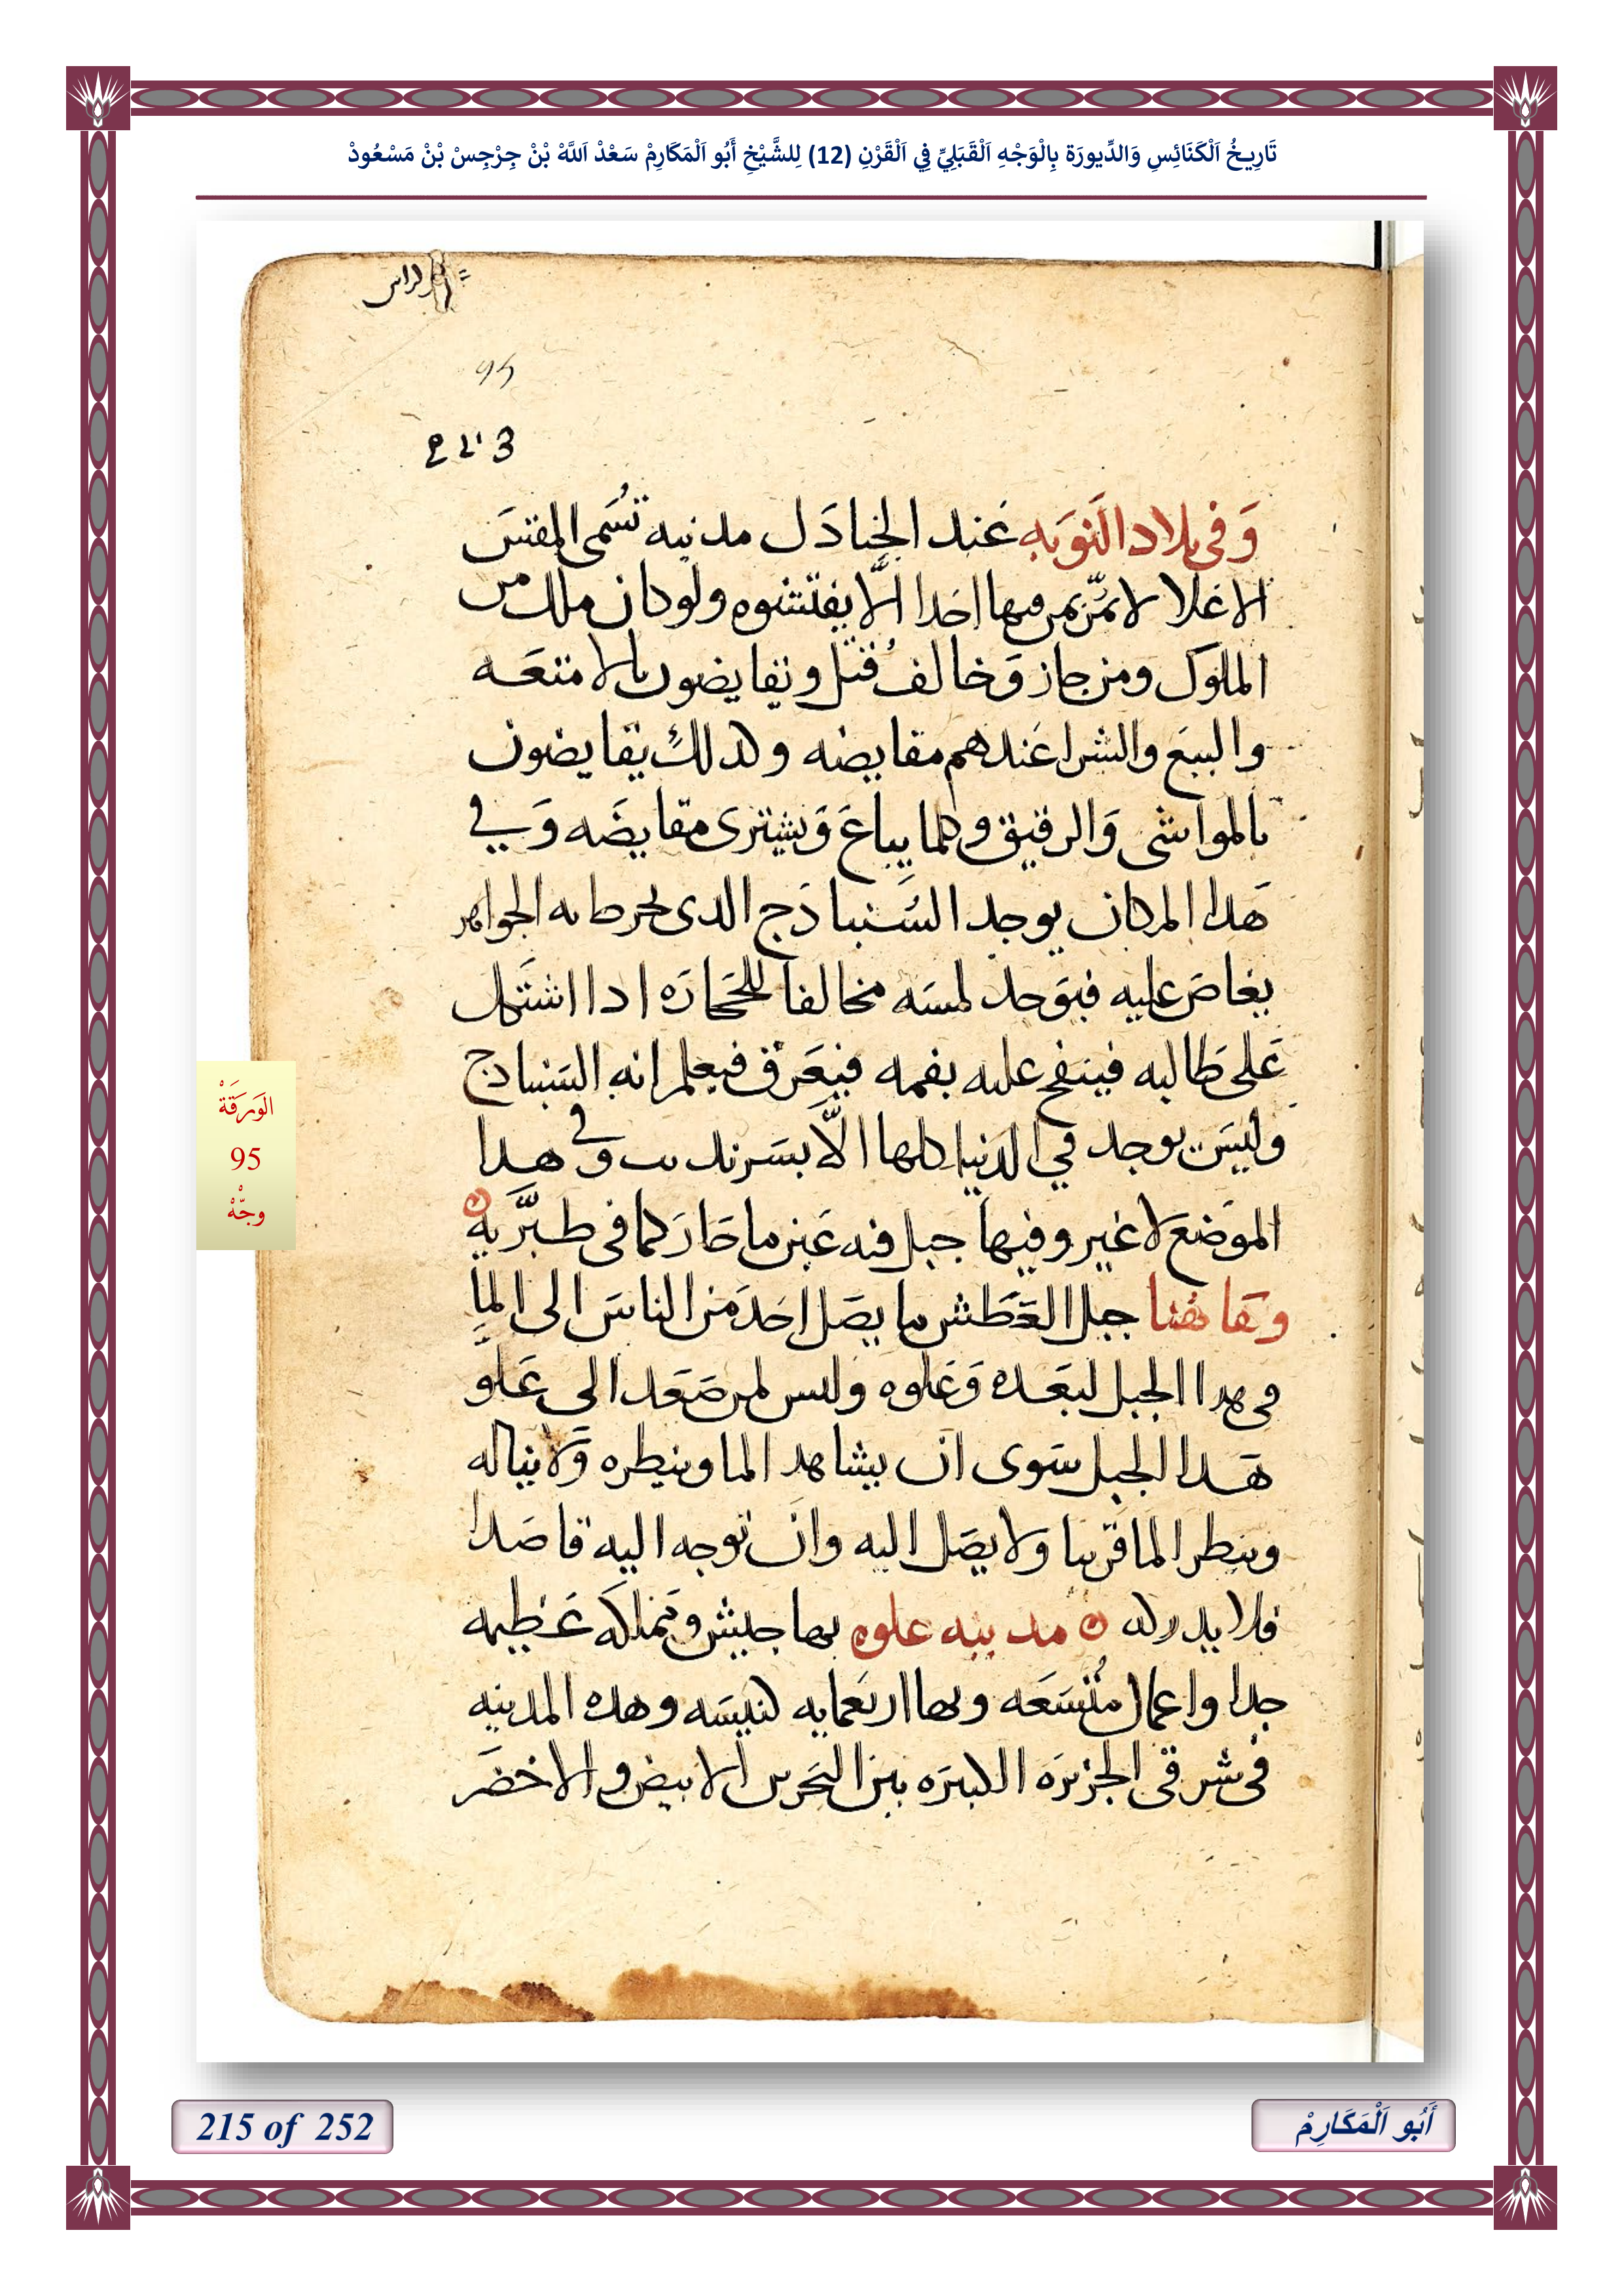 تَارِيخُ اَلْكَنَائِسِ وَالدِّيورَة بِالْوَجْهِ اَلْقَبَلِيِّ فِي اَلْقَرْنِ (12) لِلشَّيْخِ أَبُو اَلْمَكَارِمْ سَعْدْ اَللَّهْ بْنْ جِرْجِسْ بْنْ مَسْعُودْ
95
وَفى بلاد النَوَبه عَند الجنادَل مدنيه تسُمى المقسَ
الاعلا لا يمرّ بمن فيها احدا الَّا يفتشوه ولوكان ملك من
الملوك ومن جاز وَخالف قُتل وتقايضون بالامتعَه
والبيع والشرا عَندهم مقايضه وكدلك يتقايضون
بالمواشى وَالرقيق وكلما يباعَ وَيشترى مقايضَه وَفي
هَدا المكان يوجد السُنبادَج الدى يخرط به الجواهر
يغاصَ عليه فيوَجد لمسَه مخالفا للحَجارَه ادا اشتَهل
عَلى طَالبه فينفخ عليه بفمه فيَعَرق فيعلم انه السَنبادج
وليسَ يوجد في الدنيا كلها الَّا بسَرنديب وفى هدا
الموَضع لا غير وفيها جبل فيه عَين ما حَارَ كما فى طبَّريه
وهَا هُنا جبل العَطَش ما يصَل احَد مَن الناسَ الى المآ
فى هدا الجبل لبعَده وَعَلوه وليس لمن صَعَد الى عَلو
هَدا الجبل سَوى انَ يشاهد الما وينطره وَلا يناله
وينطر الما قرَيبا ولا يصَل اليه وانَ توجه اليه قاصَدا
فلا يدركه مدينه علوه بها جيش وَمملكَه عَظيمه
جدا واعمال مُتسَعَه وبها اربَعمايه كنيسَه وهده المدينه
فى شرقى الجزيرَه الكبيرَه بين البحَرين الابيض والاخضَر
الوَرَقَةْ
95
وجّْهْ
215 of 252
أَبُو اَلْمَكَارِمْ